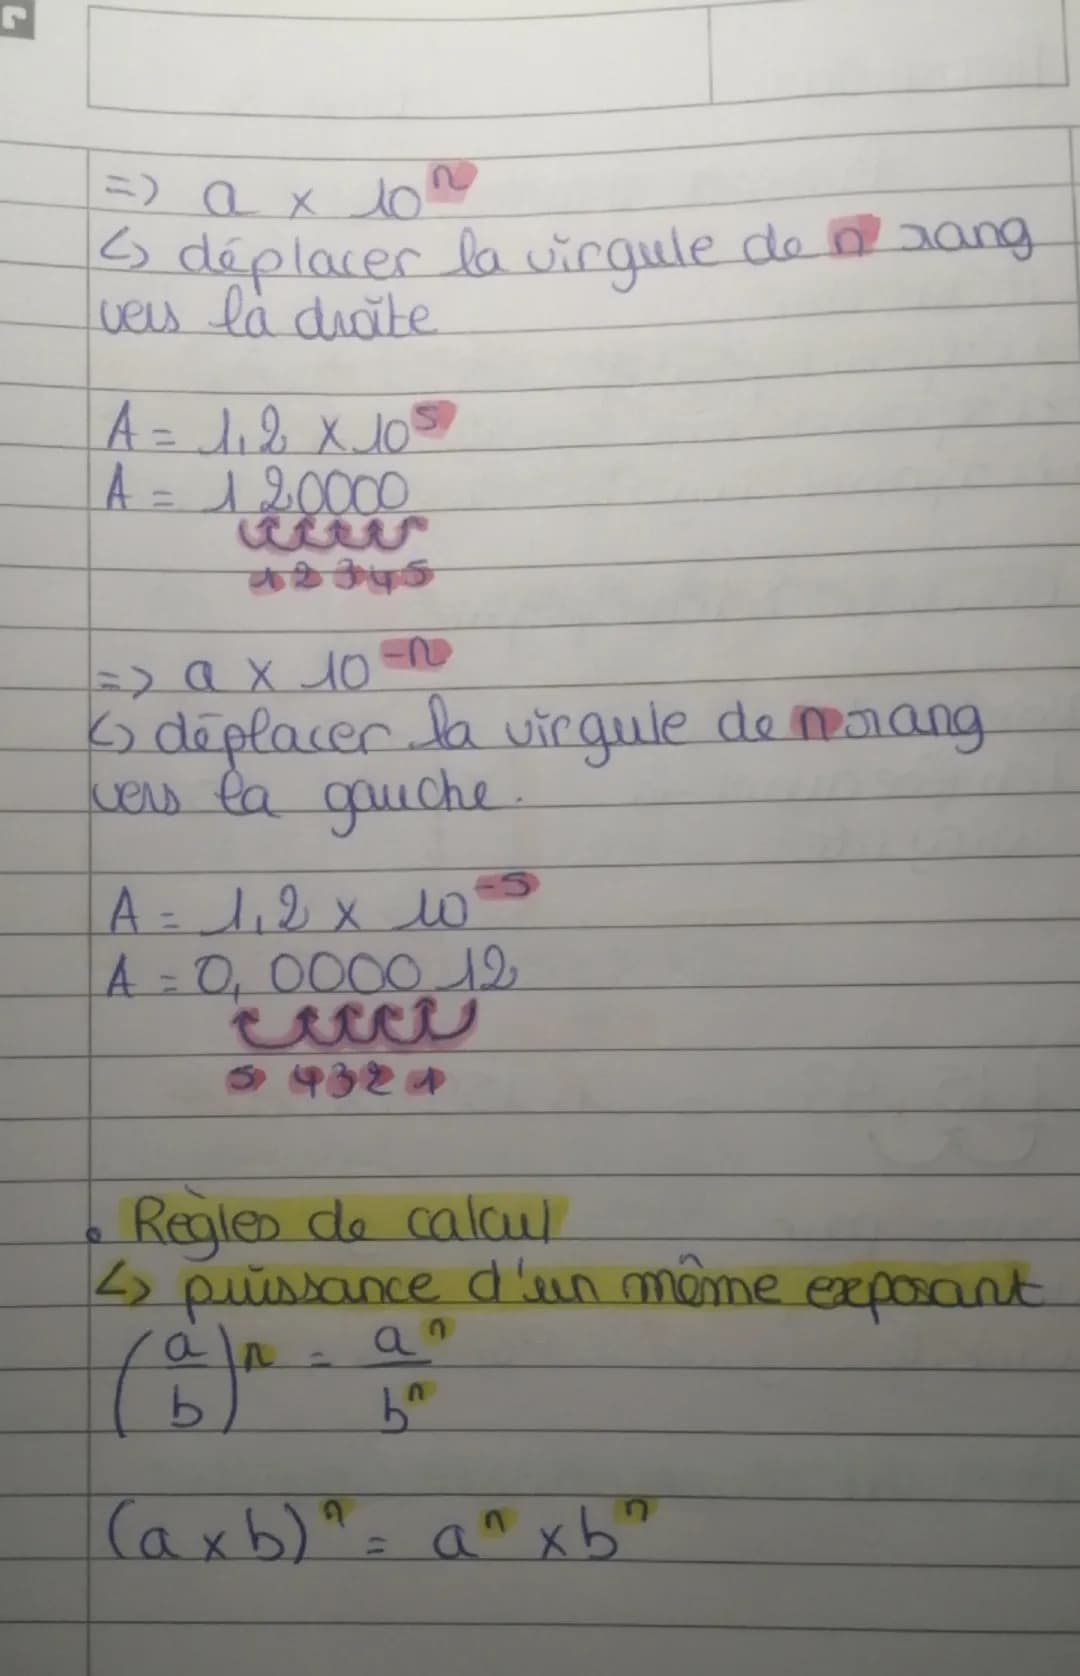 => a x 10^n
↳ déplacer la virgule de n rang
vers la droite
A = 1,2 x 10^5
A = 120000
1 2 3 4 5
=> a x 10^-n
↳ déplacer la virgule de n rang
vers la gauche.
A = 1,2 x 10^-5
A = 0,000012
5 4 3 2 1
• Règles de calcul
↳ puissance d'un même exposant
(a/b)^n = a^n/b^n
(a x b)^n = a^n x b^n